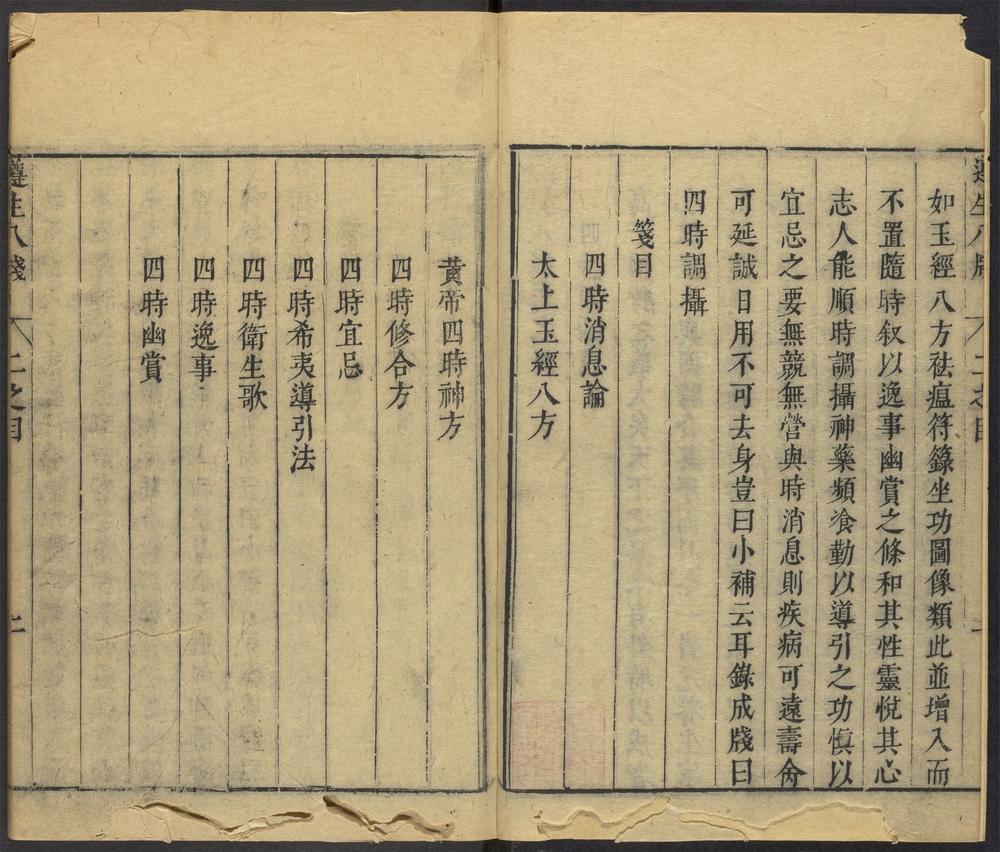 如玉經八方祛瘟符籙坐功圖像類此並增入而
不置隨時叙以逸事幽賞之條和其性靈悅其心
志人能順時調攝神藥頻飡勤以導引之功慎以
宜忌之要無競無營與時消息則疾病可遠壽命
可延誠日用不可去身豈曰小補云耳錄成牋曰
四時調攝
箋目
四時消息論
太上玉經八方
黃帝四時神方
四時修合方
四時宜忌
四時希夷導引法
四時衛生歌
四時逸事
四時幽賞
遵生八牋 二之目 二